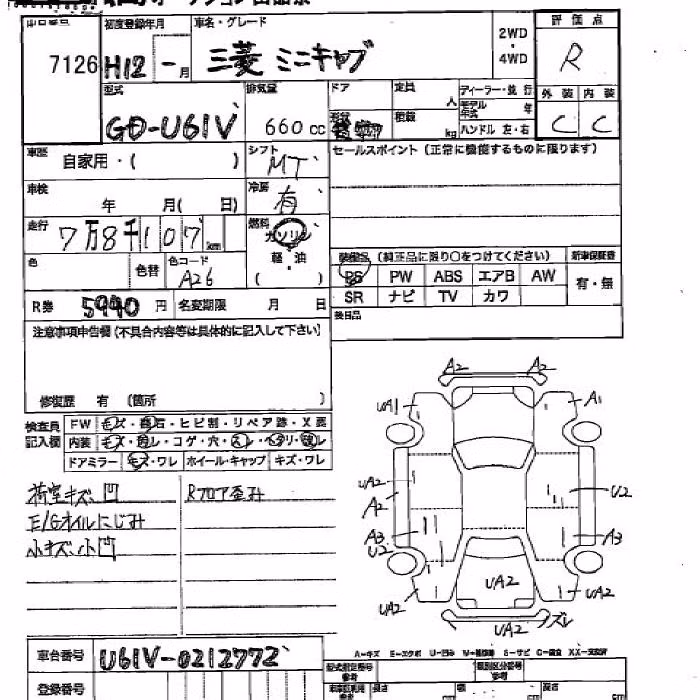 初度登録年月 車名・グレード 2WD・4WD 評価点
7126 H12 - 月 三菱 ミニキャブ R
型式 排気量 ドア 定員 人 ディーラー・並行 外装 内装
GD-U61V 660 cc 形状 積載 kg モデル年式 年 ハンドル 左・右 C C
車歴 自家用・( ) シフト MT セールスポイント (正常に機能するものに限ります)
車検 年 月( 日) 冷房 有
走行 7万8千107 km 燃料 ガソリン・軽油・( )
色 色替 色コード A26 装備品 (純正品に限り○をつけてください) 新車保証書
PS PW ABS エアB AW 有・無
SR ナビ TV カワ
R券 5990 円 名変期限 月 日 後日品
注意事項申告欄 (不具合内容等は具体的に記入して下さい)
修復歴 有 (箇所 )
検査員記入欄 FW キズ・飛石・ヒビ割・リペア跡・X要
内装 キズ・汚レ・コゲ・穴・スレ・ヘタリ・破レ
ドアミラー キズ・ワレ ホイール・キャップ キズ・ワレ
荷室キズ、凹 Rフロア歪み
E/Gオイルにじみ
小キズ、小凹
A2 A2
UA1 A1
UA2 U2
A2
A3 A3
U2
UA2 UA2 UA2
UA2 ズレ
車台番号 U61V-0212772
登録番号
型式指定番号 類別区分番号
長さ cm 幅 cm 高さ cm